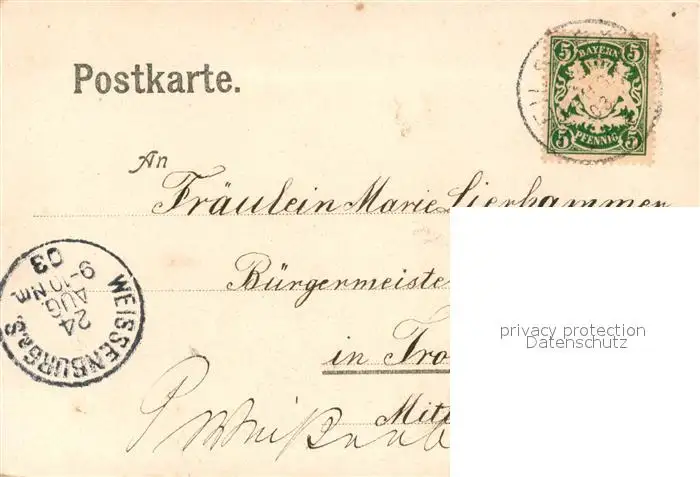 Postkarte.
5 BAYERN 5
5 PFENNIG 5
An
Fräulein Marie Lierhammer
Bürgermeiste
in Tro
Mitt
WEISSENBURG a/S.
24
AUG.
9-10 Nm
03
privacy protection
Datenschutz